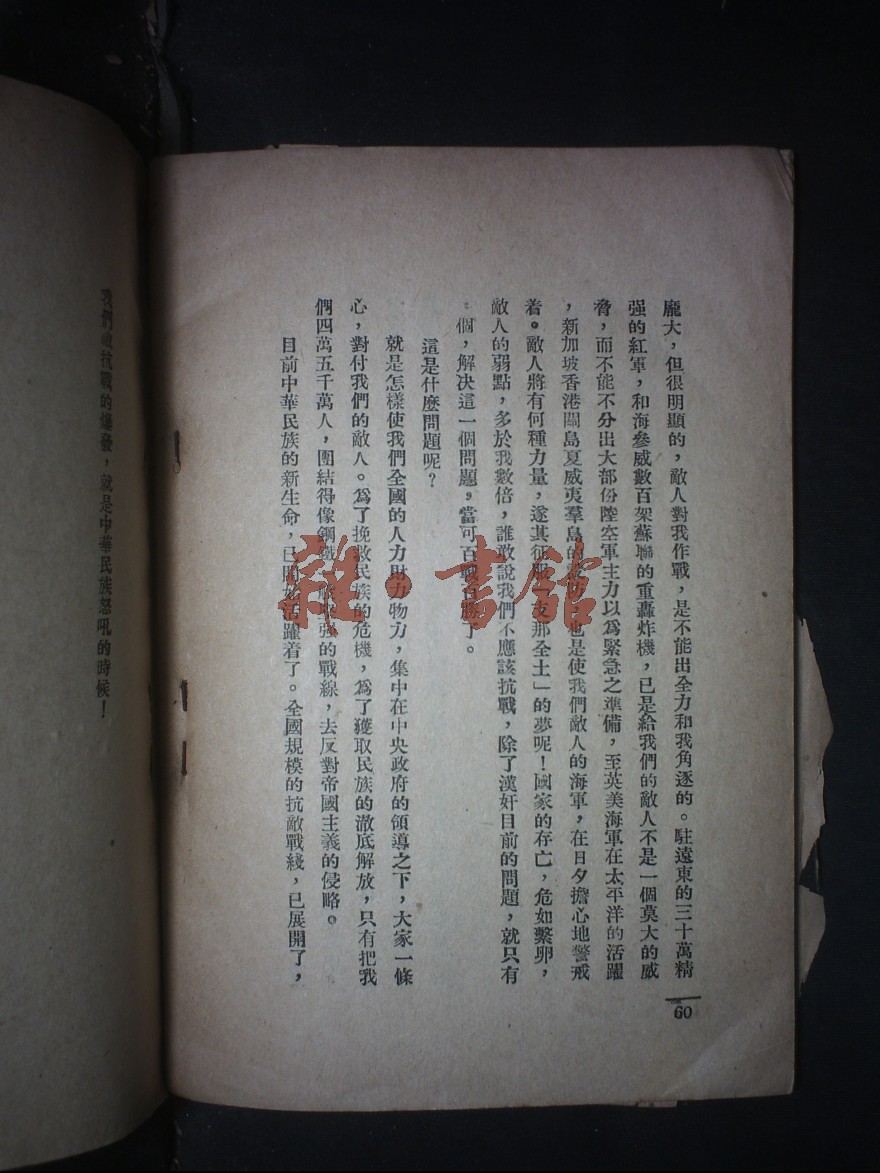 龐大，但很明顯的，敵人對我作戰，是不能出全力和我角逐的。駐遠東的三十萬精
强的紅軍，和海參威數百架蘇聯的重轟炸機，已是給我們的敵人不是一個莫大的威
脅，而不能不分出大部份陸空軍主力以爲緊急之準備，至英美海軍在太平洋的活躍
，新加坡香港關島夏威夷羣島的 也是使我們敵人的海軍，在日夕擔心地警戒
着。敵人將有何種力量，遂其征服「支那全土」的夢呢！國家的存亡，危如繫卵，
敵人的弱點，多於我數倍，誰敢說我們不應該抗戰，除了漢奸目前的問題，就只有
個，解决這一個問題，當可百戰百勝了。
這是什麼問題呢？
就是怎樣使我們全國的人力財力物力，集中在中央政府的領導之下，大家一條
心，對付我們的敵人。爲了挽救民族的危機，爲了獲取民族的澈底解放，只有把我
們四萬五千萬人，團結得像鋼鐵一 强的戰線，去反對帝國主義的侵略。
目前中華民族的新生命，已開始活躍着了。全國規模的抗敵戰綫，已展開了，
60
我們 抗戰的爆發，就是中華民族怒吼的時候！
書館